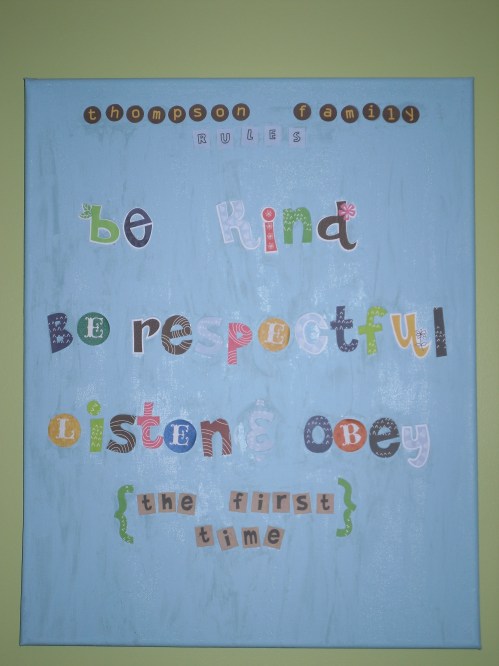 thompson family
RULES
be Kind
BE respectful
Listen & OBey
{the first
time}